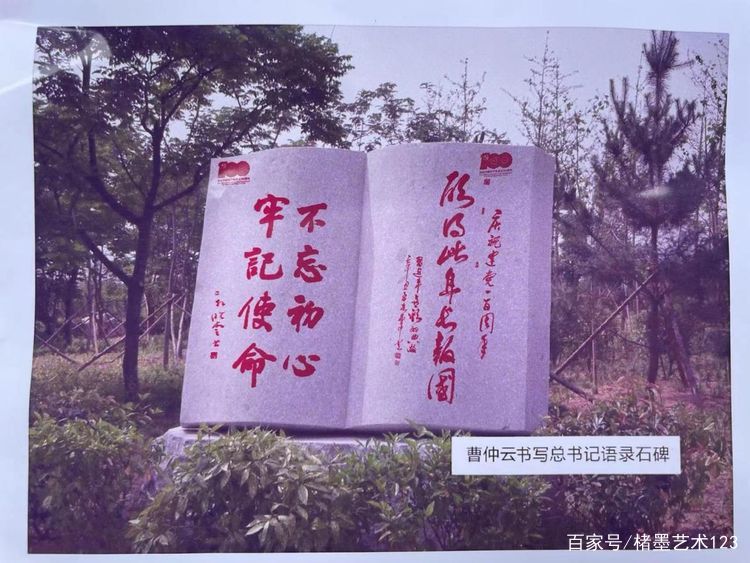 100
庆祝建党一百周年
愿得此身长報國
100
不忘初心
牢記使命
曹仲云书写总书记语录石碑
百家号/楮墨艺术123